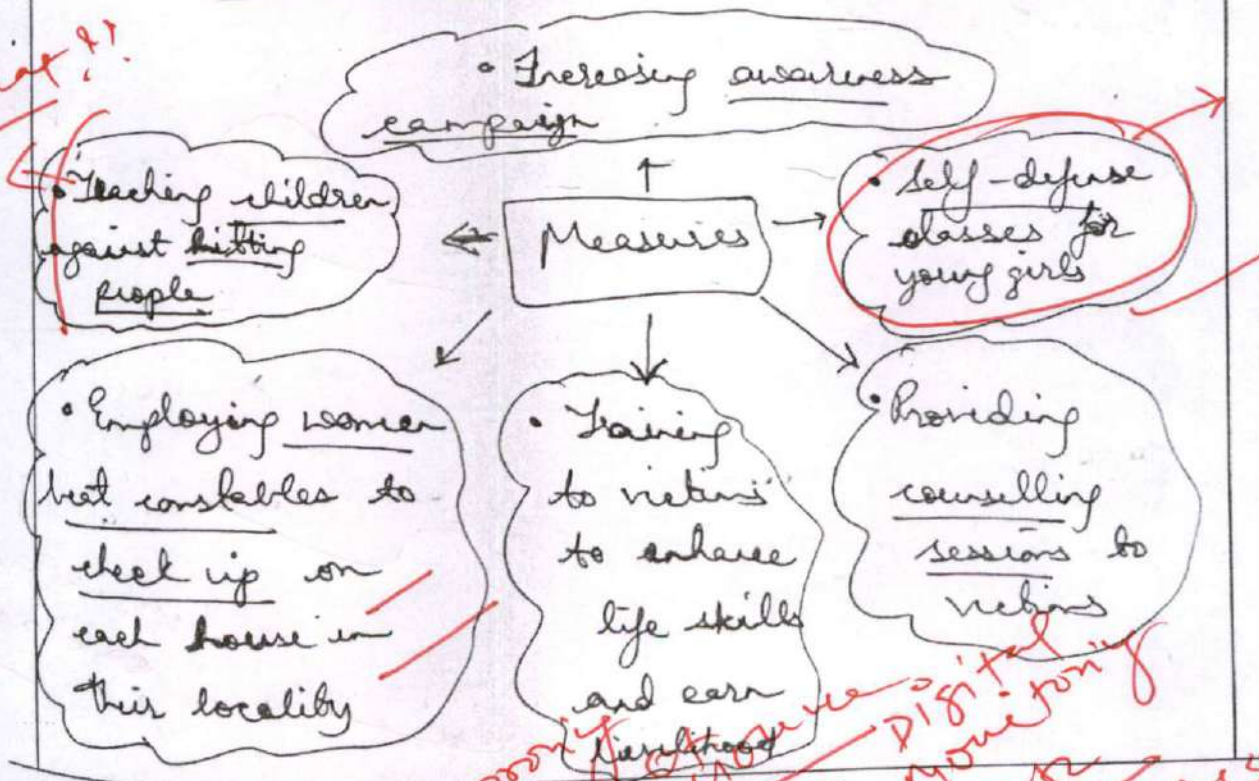 • Increasing awareness
campaign
• Teaching children
against hitting
people
Measures
• Self-defense
classes for
young girls
• Employing women
beat constables to
check up on
each house in
their locality
• Training
to victims
to enhance
life skills
and earn
livelihood
• Providing
counselling
sessions to
victims
Digital